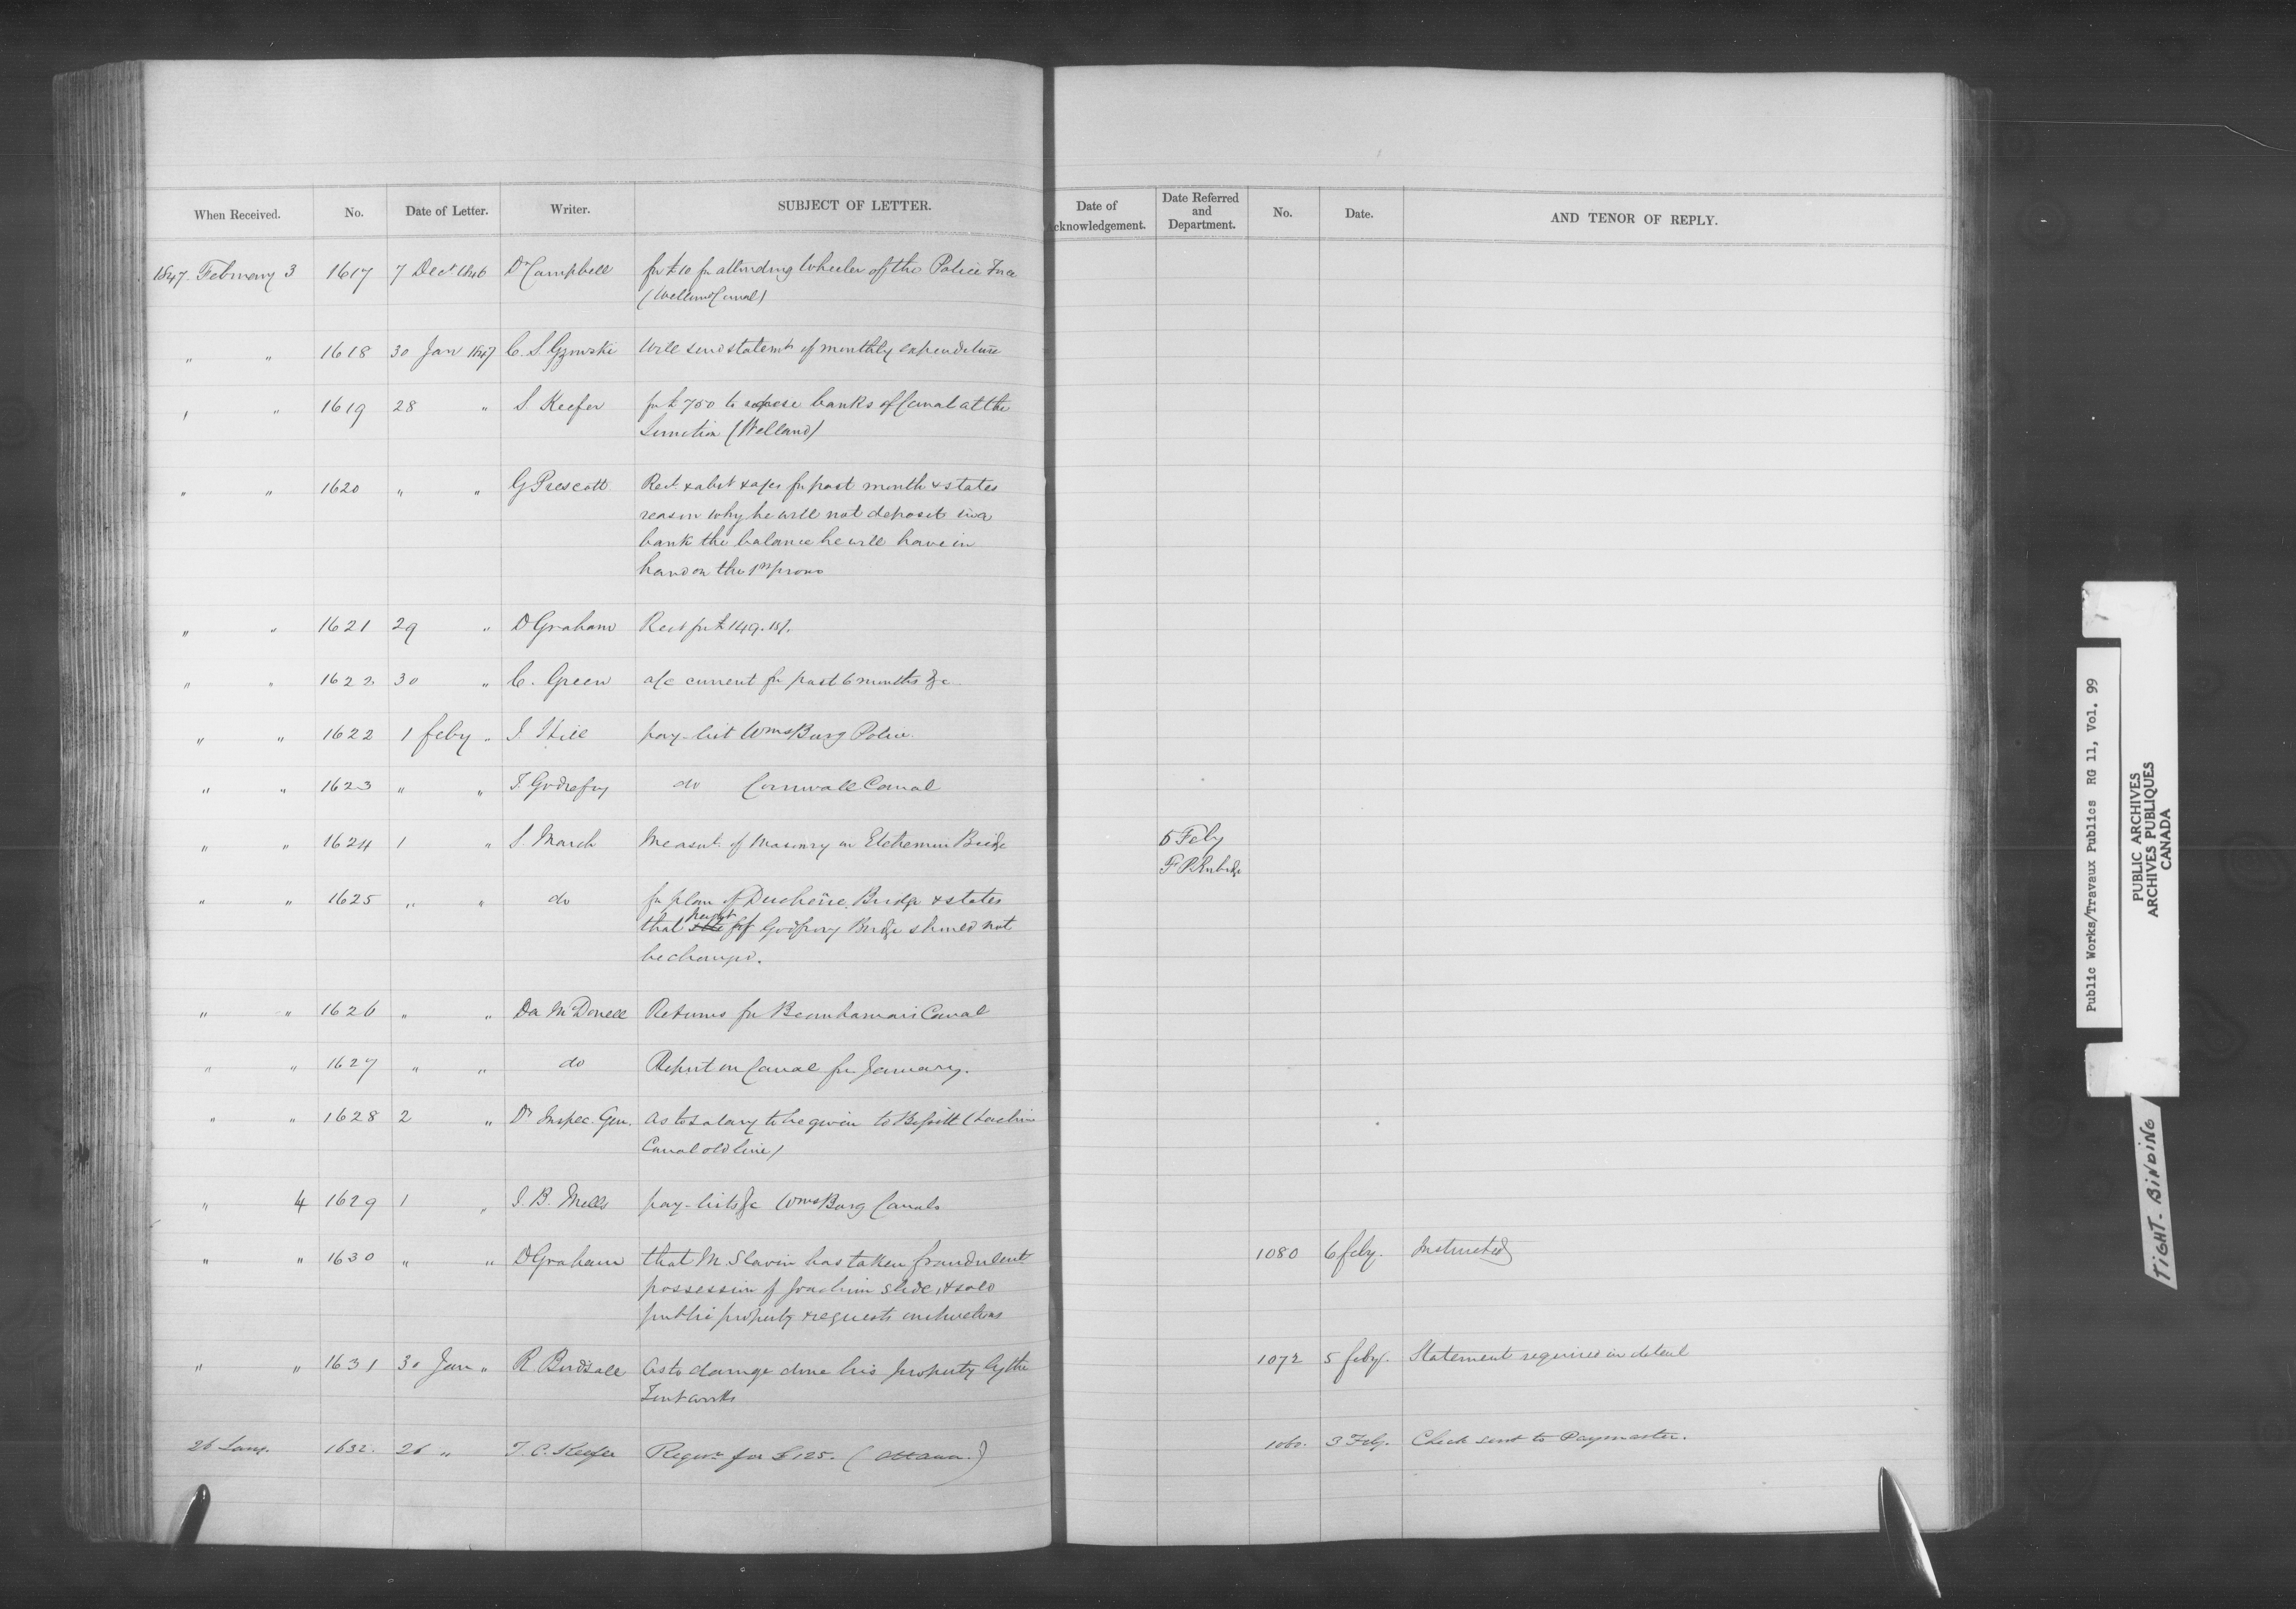 When Received. No. Date of Letter. Writer. SUBJECT OF LETTER. Date of Acknowledgement. Date Referred and Department. No. Date. AND TENOR OF REPLY.
1847. February 3 1617 7 Decr 1846 Dr Campbell for £10 for attending Wheeler of the Police Force
(Welland Canal)
" " 1618 30 Jan 1847 C. S. Gzowski Will send statemt of monthly expenditure
" " 1619 28 " S. Keefer for £750 to banks of Canal at the
Junction (Welland)
" " 1620 " " G Prescott Rect & abst for past month & states
reason why he will not deposit in a
bank the balance he will have in
hand on the 1st proxo
" " 1621 29 " D Graham Rect for £149.
" " 1622 30 " C. Green a/c current for past 6 months &c
" " 1622 1 feby " J. Hill pay-list WmsBurg Police.
" " 1623 " " T. Godfrey do Cornwall Canal
" " 1624 1 " S. March Measut. of Masonry on Etchemin Bridge 5 Feby
F P Rubidge
" " 1625 " " do for plan of Duchêne Bridge & states
that height of Godfroy Bridge should not
be changed.
" " 1626 " " Da McDonell Returns for Beauharnais Canal
" " 1627 " " do Report on Canal for January.
" " 1628 2 " Dy Inspec. Gen. As to salary to be given to (Lachine
Canal old line)
" 4 1629 1 " J. B. Mills pay-lists &c WmsBurg Canals
" " 1630 " " D Graham that M. Slavin has taken fraudulent 1080 6 feby. Instructed
possession of Joachim slide, & sold
public property & requests instructions
" " 1631 30 Jan " R Birdsall As to damage done his property by the 1072 5 feby. Statement required in detail
Trent works
26 Jany. 1632. 26 " T. C. Keefer Requn for £125. (Ottawa.) 1060. 3 Feby. Check sent to Paymaster.
Public Works/Travaux Publics RG 11, Vol. 99
PUBLIC ARCHIVES
ARCHIVES PUBLIQUES
CANADA
TIGHT-BINDING